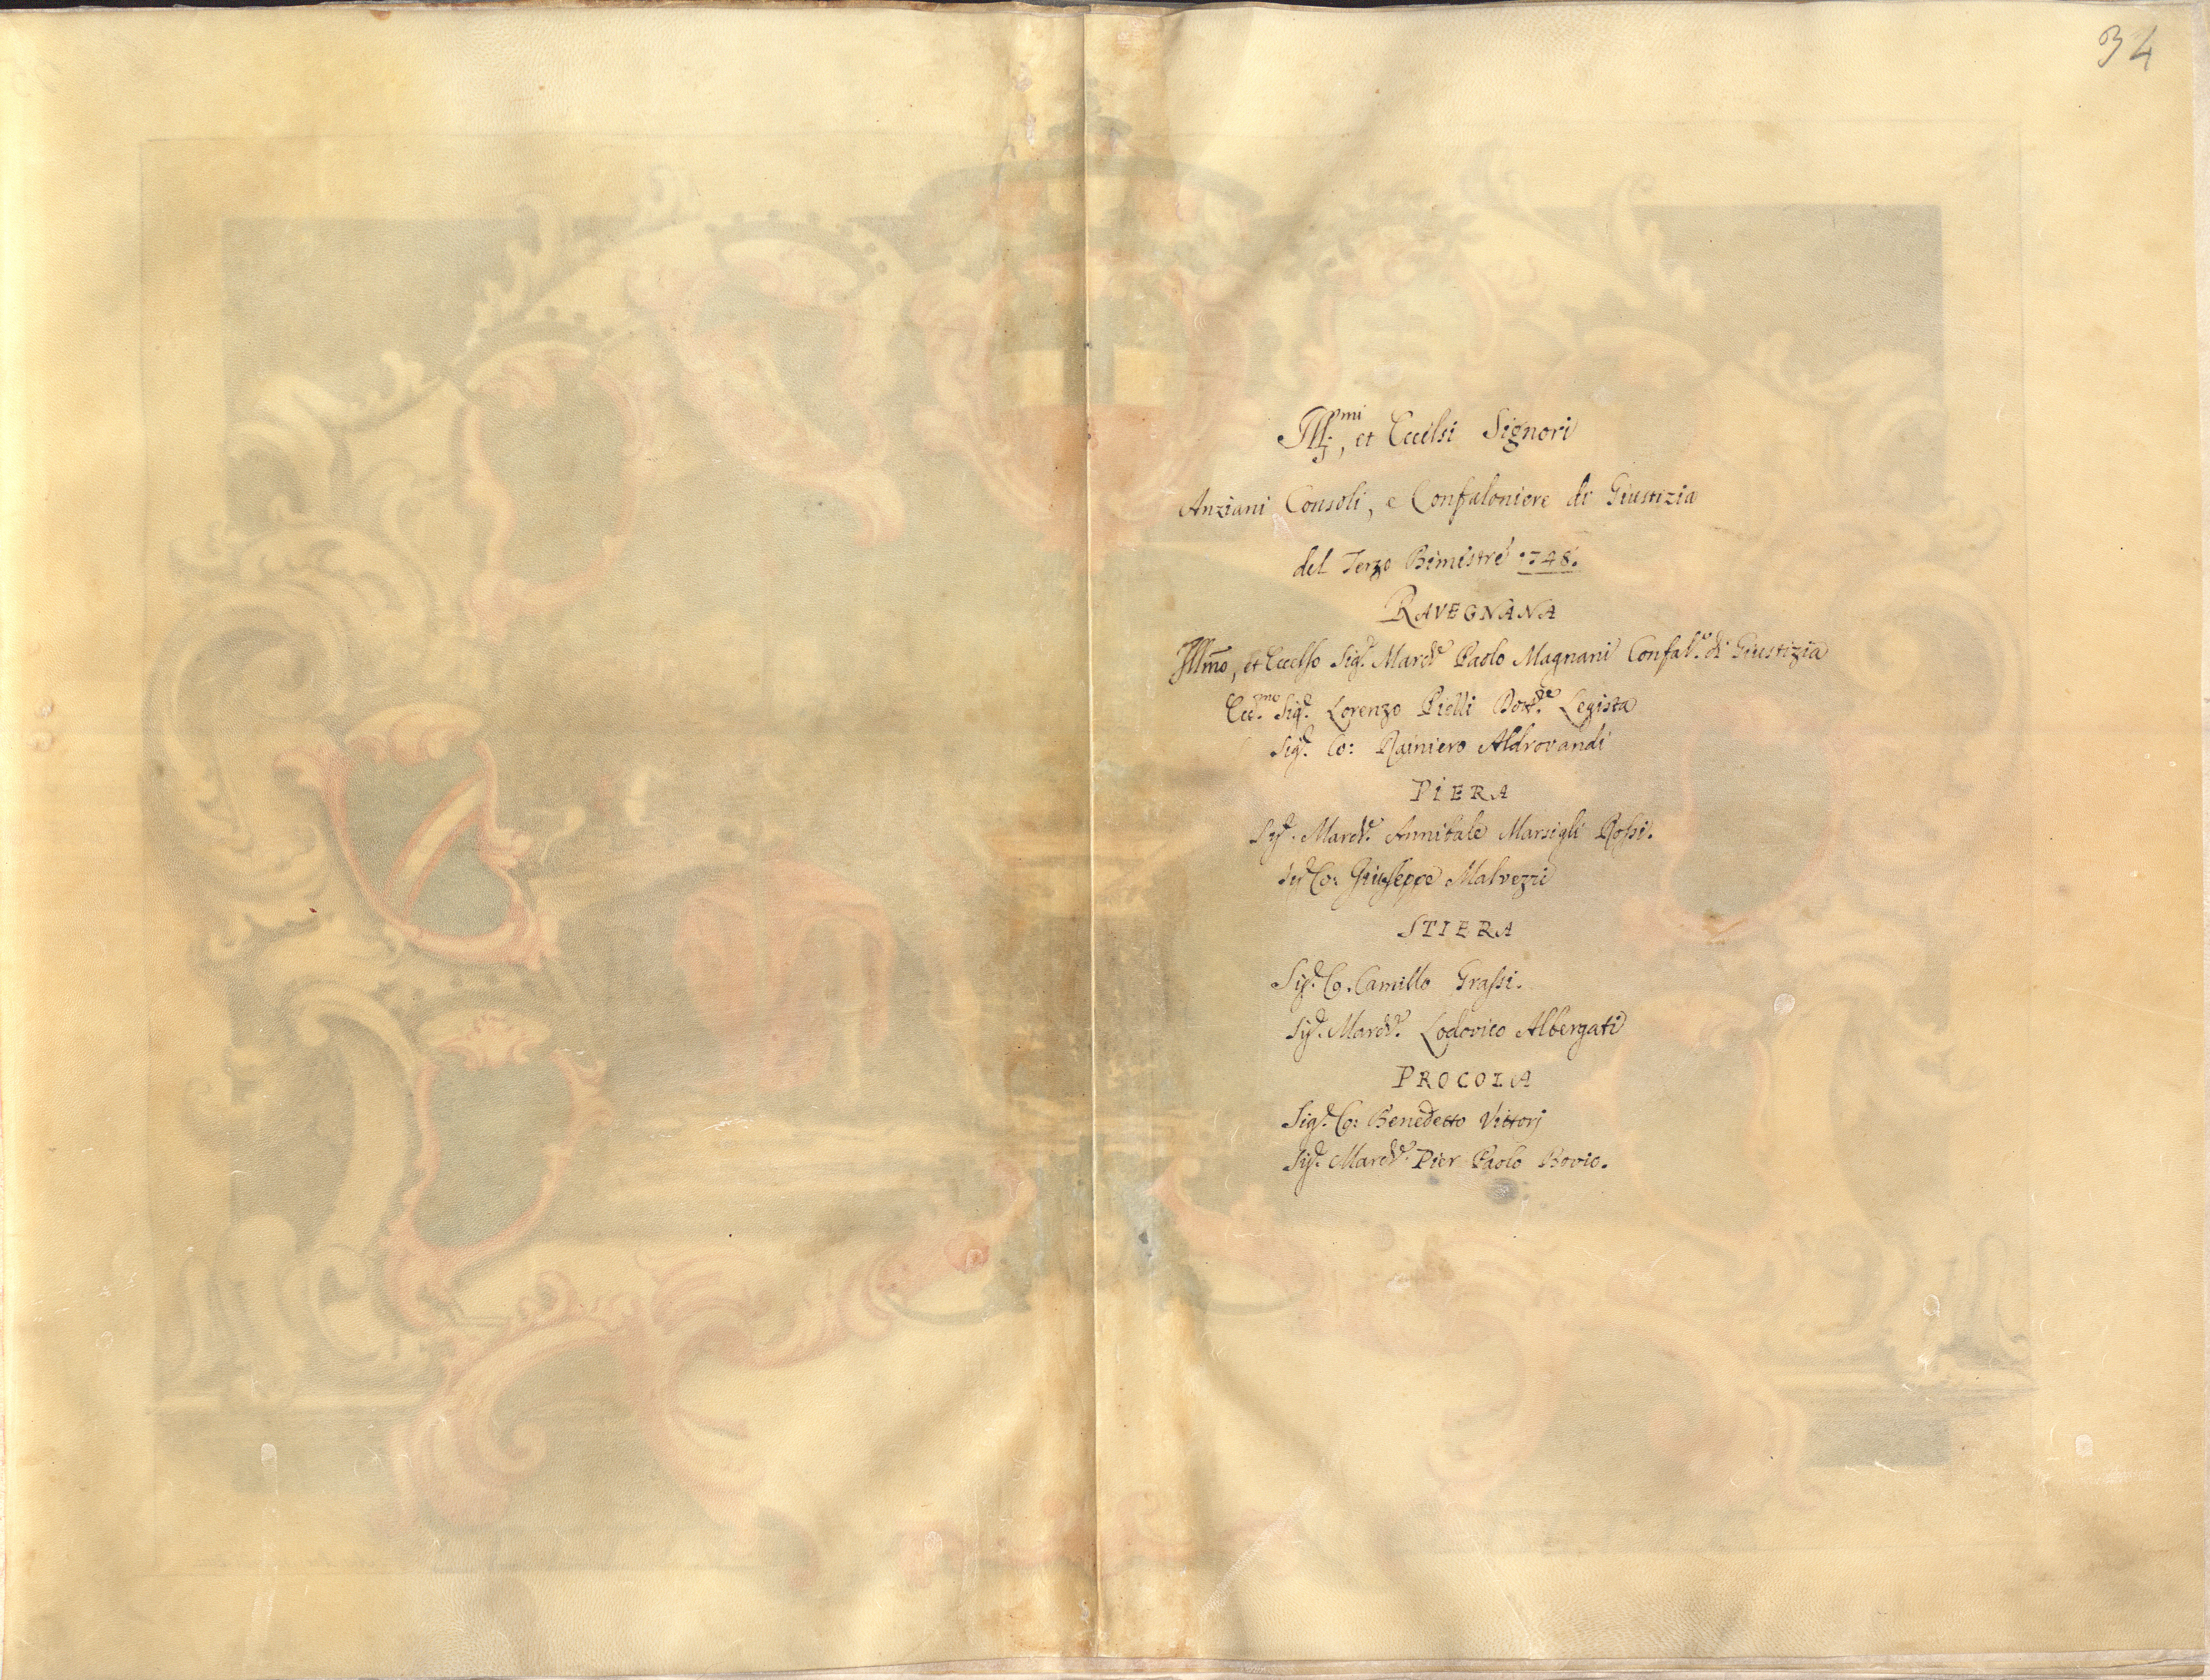 34
Ill:mi, et Eccelsi Signori
Anziani Consoli, e Confaloniere di Giustizia
del Terzo Bimestre 1748.
RAVEGNANA
Illmo, et Eccelso Sig.r March.e Paolo Magnani Confal.e di Giustizia
Ecc.mo Sig.r Lorenzo Pielli Dott.re Legista
Sig.r Co: Rainiero Aldrovandi
PIERA
Sig.r March.e Annibale Marsigli Rossi.
Sig.r Co: Giuseppe Malvezzi
STIERA
Sig.r Co. Camillo Grassi.
Sig.r March.e Lodovico Albergati
PROCOLA
Sig.r Co: Benedetto Vittorj
Sig.r March.e Pier Paolo Bovio.